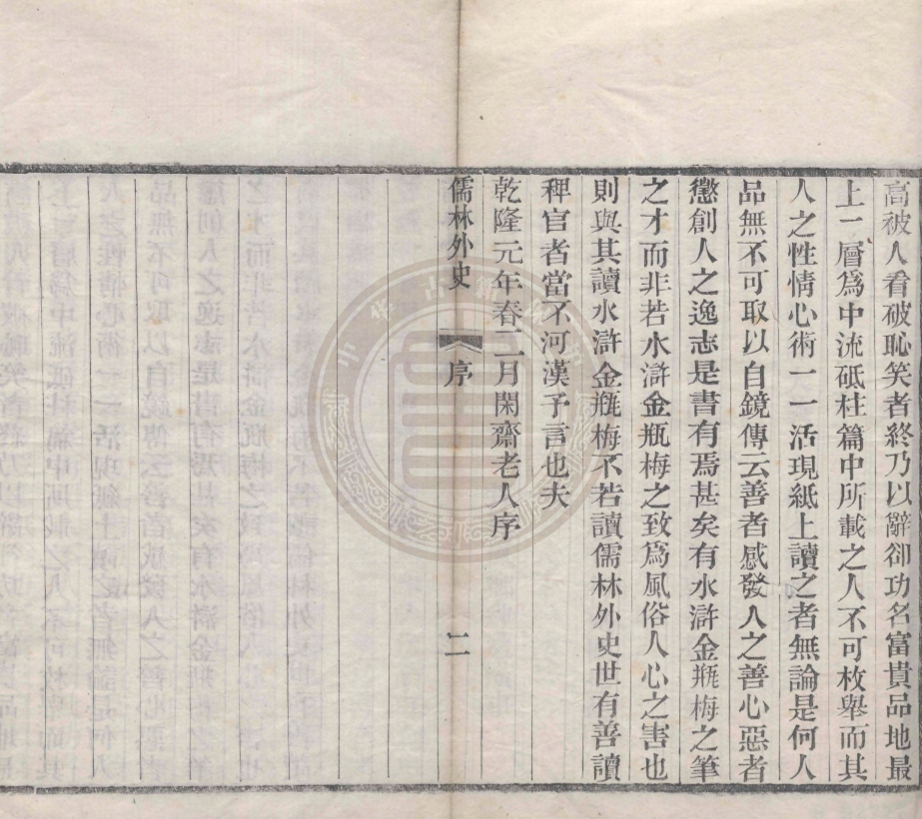 高被人看破恥笑者終乃以辭卻功名富貴品地最
上一層爲中流砥柱篇中所載之人不可枚舉而其
人之性情心術一一活現紙上讀之者無論是何人
品無不可取以自鏡傳云善者感發人之善心惡者
懲創人之逸志是書有焉甚矣有水滸金瓶梅之筆
之才而非若水滸金瓶梅之致爲風俗人心之害也
則與其讀水滸金瓶梅不若讀儒林外史世有善讀
稗官者當不河漢予言也夫
乾隆元年春二月閑齋老人序
儒林外史 序 二